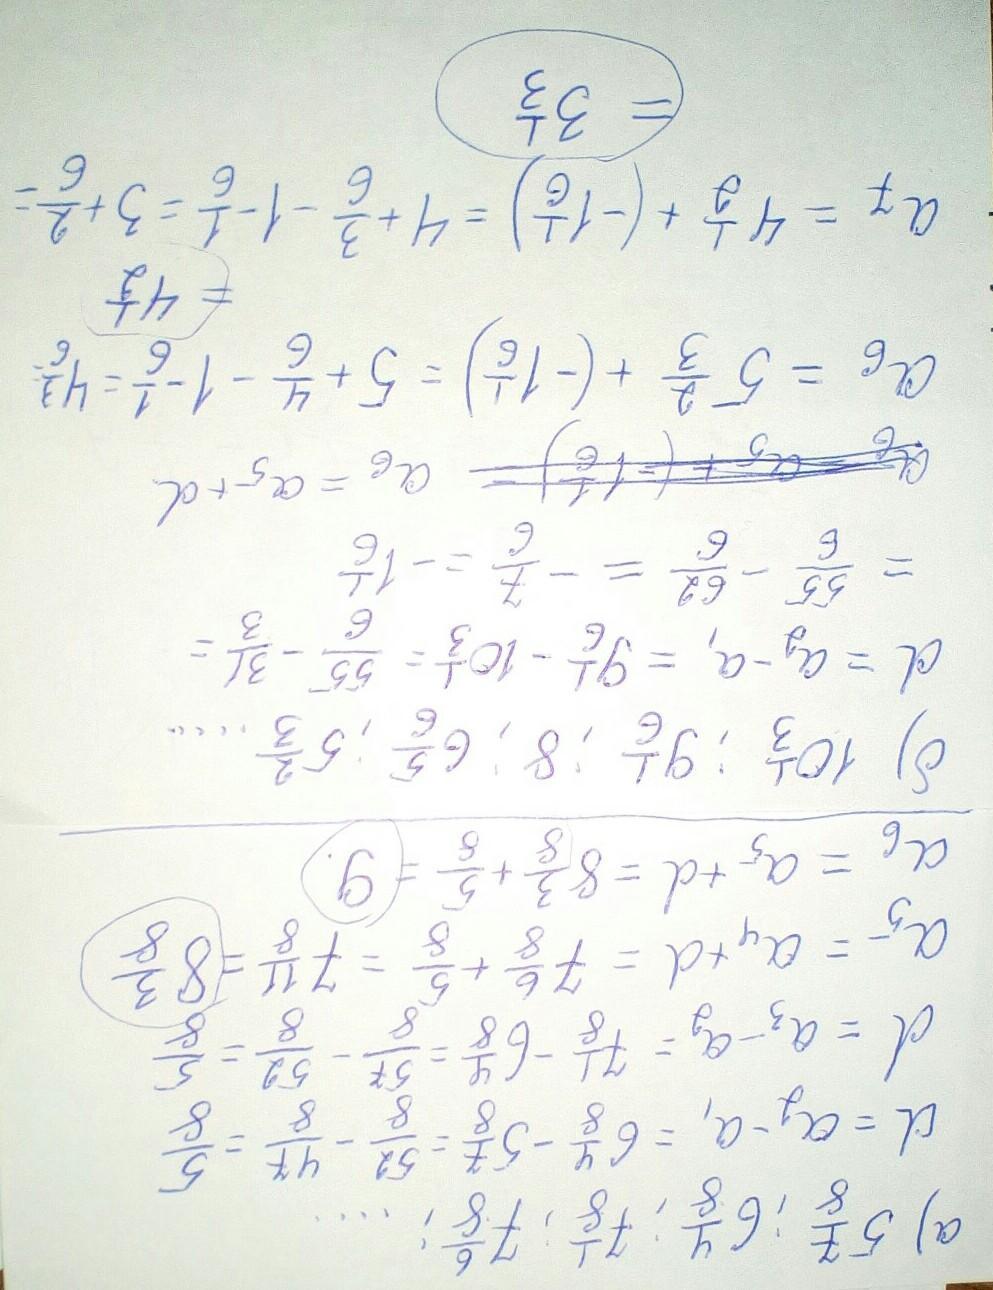 а) 5 7/8 ; 6 4/8 ; 7 1/8 ; 7 6/8 ; ....
d = a₂ - a₁ = 6 4/8 - 5 7/8 = 52/8 - 47/8 = 5/8
d = a₃ - a₂ = 7 1/8 - 6 4/8 = 57/8 - 52/8 = 5/8
a₅ = a₄ + d = 7 6/8 + 5/8 = 7 11/8 = 8 3/8
a₆ = a₅ + d = 8 3/8 + 5/8 = 9
б) 10 1/3 ; 9 1/6 ; 8 ; 6 5/6 ; 5 2/3 ......
d = a₂ - a₁ = 9 1/6 - 10 1/3 = 55/6 - 31/3 =
= 55/6 - 62/6 = - 7/6 = - 1 1/6
a₆ = a₅ + (- 1 1/6) = a₆ = a₅ + d
a₆ = 5 2/3 + (- 1 1/6) = 5 + 4/6 - 1 - 1/6 = 4 3/6 =
= 4 1/2
a₇ = 4 1/2 + (- 1 1/6) = 4 + 3/6 - 1 - 1/6 = 3 + 2/6 =
= 3 1/3